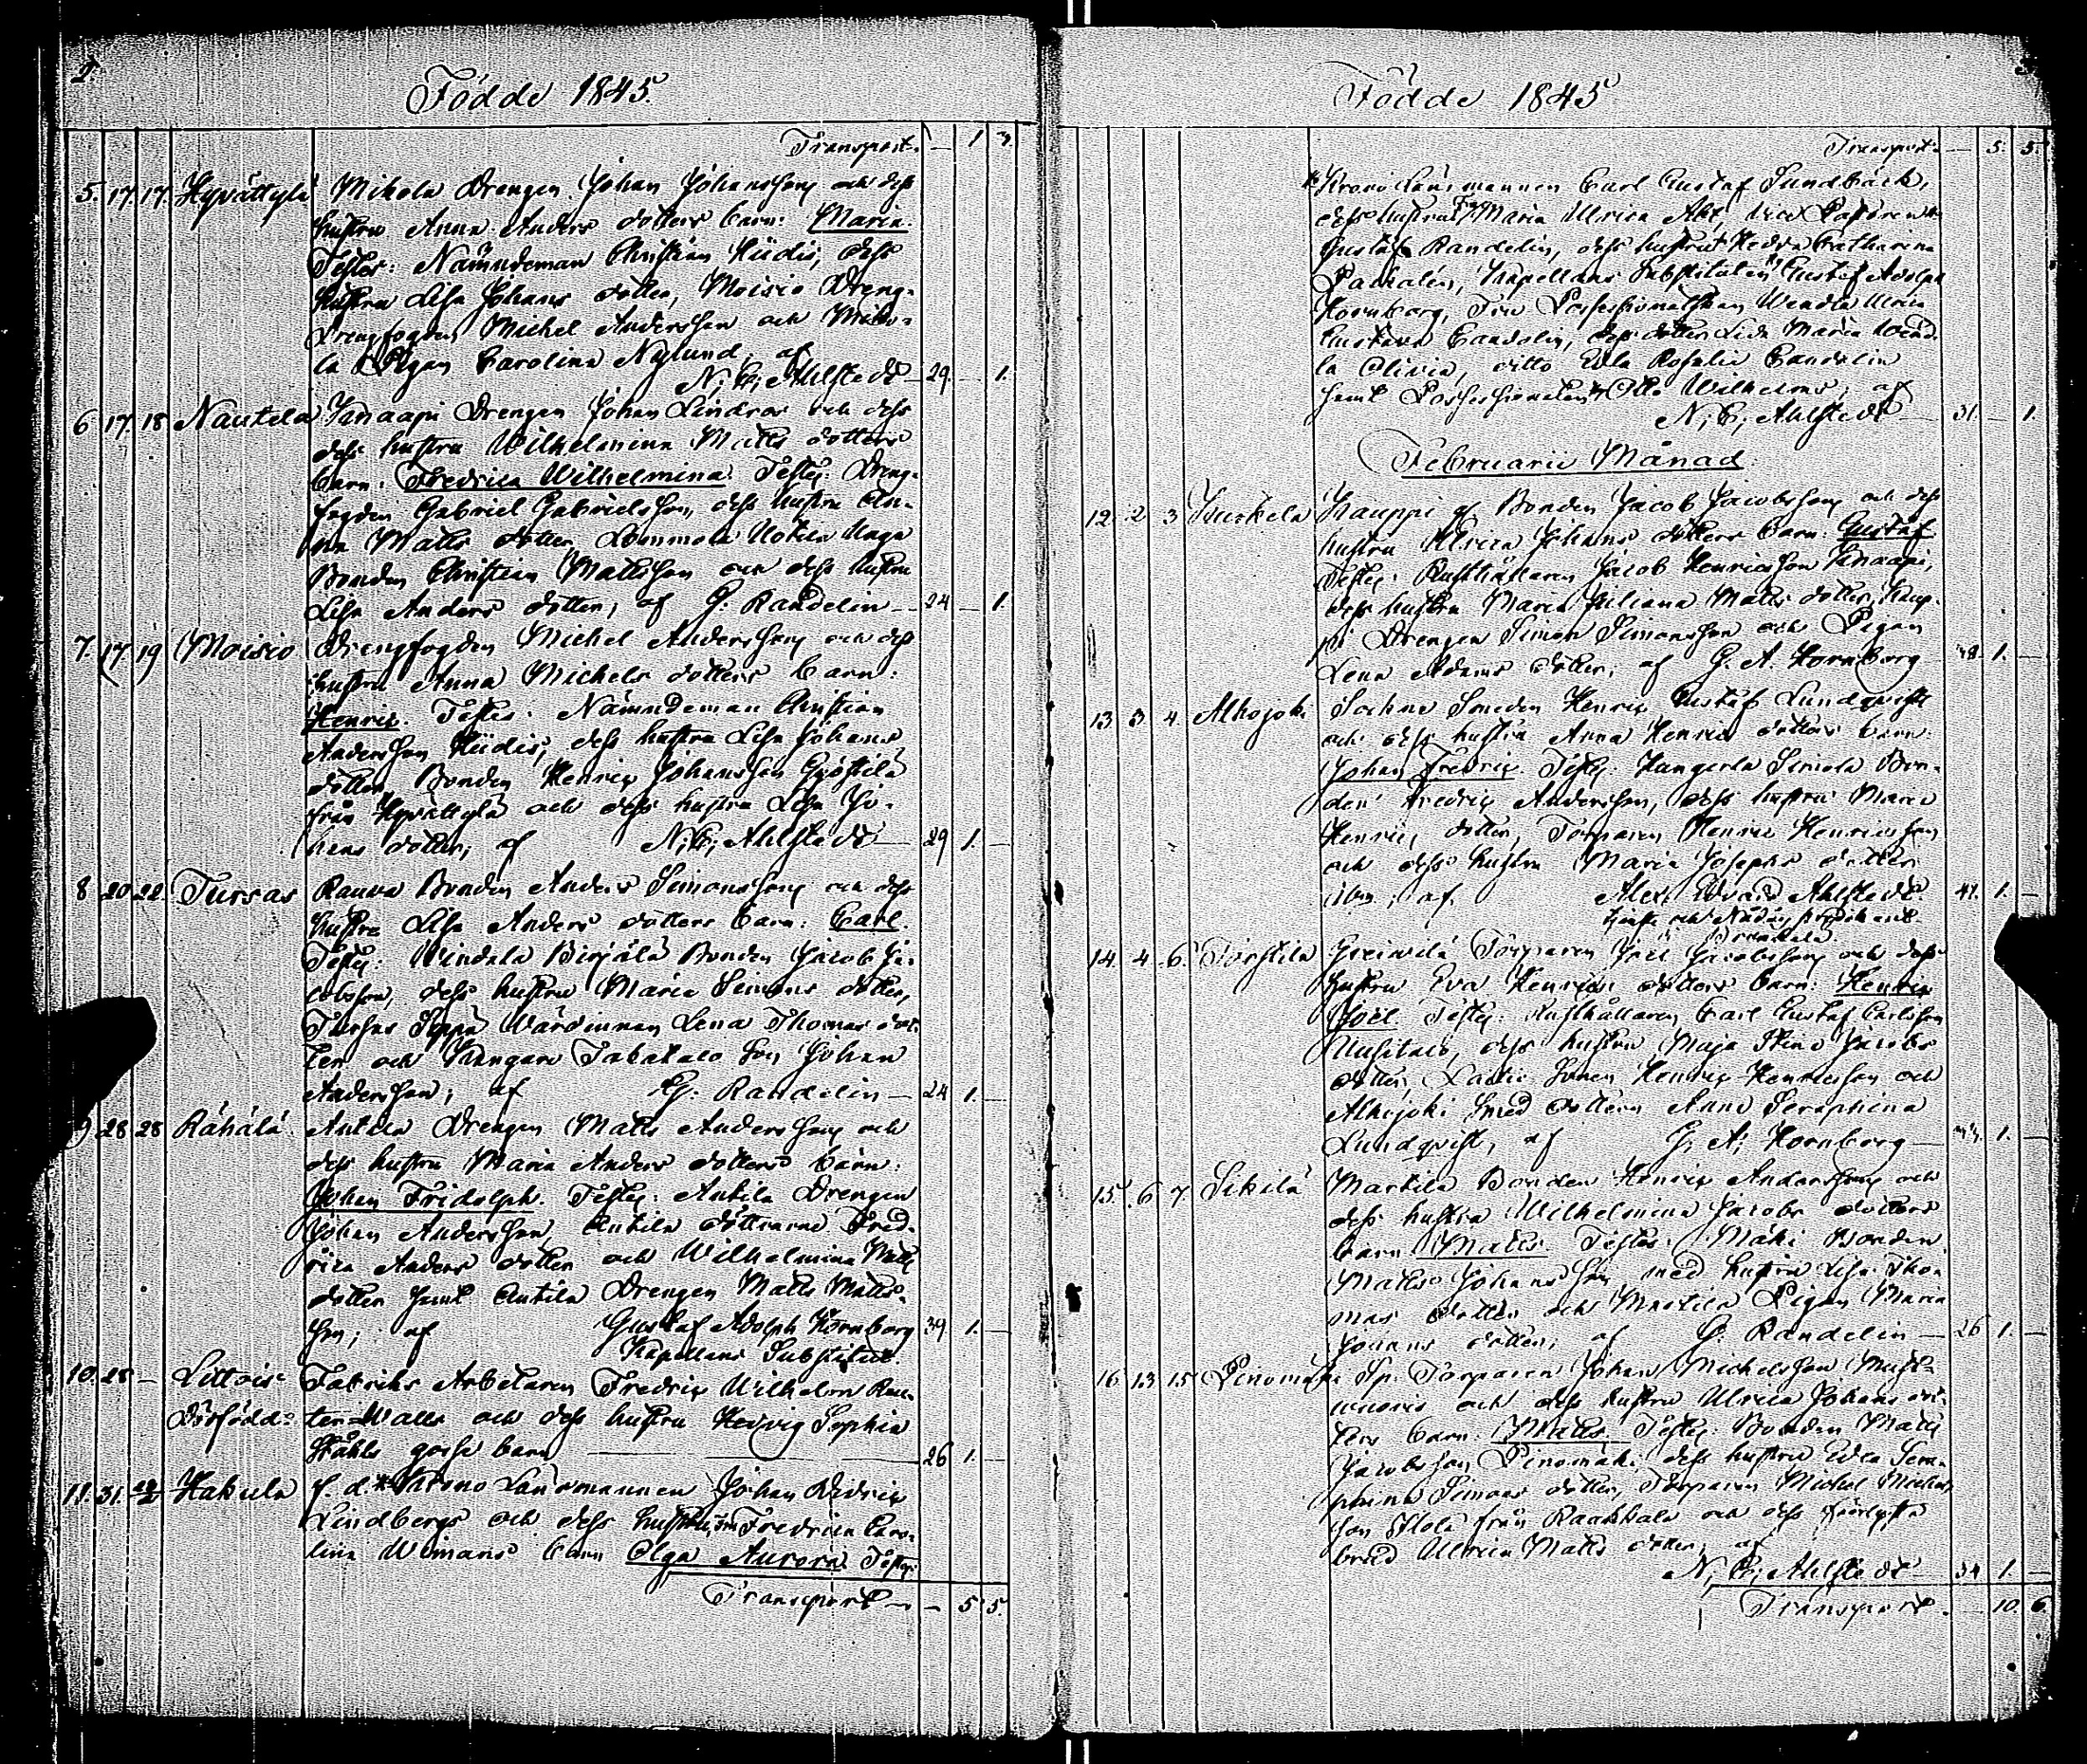 2.
Födde 1845.
Transport. — 1. 4.
5. 17. 17. Hyvättylä Mikola Drengen Johan Johansson och dess
hustru Anna Anders dotters barn: Maria.
Testes: Nämndeman Christian Hiidis, dess
hustru Lisa Johans dotter, Moisio Dreng-
Drengfogden Michel Andersson och Miko-
la Pigan Carolina Nylund, af
N. C. Ahlstedt — 29. — 1.
6 17. 18 Nautela Knaapi Drengen Johan Lindros och dess
dess hustru Wilhelmina Matts dotters
barn: Fredrica Wilhelmina. Testes: Dreng-
fogden Gabriel Gabrielsson, dess hustru An-
na Matts dotter, Lommola Uotila Maga
Bonden Christian Mattsson och dess hustru
Lisa Anders dotter, af G. Randelin — 24 — 1.
7. 17 19 Moisio Drengfogden Michel Andersson och dess
hustru Anna Michels dotters barn:
Henric. Testes: Nämndeman Christian
Andersson Hiidis, dess hustru Lisa Johans
dotter, Bonden Henric Johansson Gyöstilä
från Hyvättylä och dess hustru Lisa Jo-
hans dotter, af N. C. Ahlstedt — 29 1. —
8 20 22. Tursas Rauva Bonden Anders Simonsson och dess
hustru Lisa Anders dotters barn: Carl.
Testes: Windala Birjälä Bonden Jacob Ja-
cobsson, dess hustru Maria Simons dotter,
Tursas Seppä Wärdinnan Lena Thomas dot-
ter och Kangare Tabakaco son Johan
Andersson; af G. Randelin — 24 1. —
9 28 28 Rähälä. Antila Drengen Matts Andersson och
dess hustru Maria Anders dotters barn:
Johan Fridolph. Testes: Antila Drengen
Johan Andersson, Antila döttrarne Fred-
rica Anders dotter och Wilhelmina Matts
dotter samt Antila Drengen Matts Matts-
son; af Gustaf Adolph Hornborg 39 1. —
Kapellans Substitut.
10. 28 — Littois Fabriks Arbetaren Fredric Wilhelm
Dödfödd. Walls och dess hustru Hedvig Sophia
Ståhls gosse barn — 26 1. —
11. 31. Hakula f. d. Krono Länsmannen Johan Fredric
Lindbergs och dess hustru Fredrica Caro-
lina Wimans barn Olga Aurora. Testes:
Transport — — 5 5.
Födde 1845
Transport. — 5. 5.
Krono Länsmannen Carl Gustaf Sundbäck,
dess hustru Fru Maria Ulrica Alix, Vice Pastoren
Gustaf Randelin, dess hustru Hedda Catharina
Pahalén, Kapellans Substituten Gustaf Adolph
Hornborg, Fru Possessionatskan Wendla Ulrica
Gustava Candolin, dess dotter Lida Maria Wend-
la Olivia, ditto Edla Rosalie Candolin
samt Possessionaten Otto Wilhelms, af
N. C. Ahlstedt — 31. — 1.
Februarii Månad.
12. 2 3 Kuckela Kauppi Bonden Jacob Jacobsson och dess
hustru Ulrica Johans dotters barn: Gustaf.
Testes: Rusthållaren Jacob Henricsson Knaapi,
dess hustru Maria Juliana Matts dotter, Kaup-
pi Drengen Simon Simonsson och Pigan
Lena Adams dotter, af G. A. Hornborg — 1. —
13 3 4. Alhojoki Sachna Smeden Henric Gustaf Lundqvist
och dess hustru Anna Henrics dotters barn:
Johan Fredric. Testes: Kungerla Simola Bon-
den Fredric Andersson, dess hustru Maria
Henrics dotter, Torparen Henric Henricsson
och dess hustru Maria Josephs dotter
af Alex. Edvard Ahlstedt. 41. 1. —
14. 4 6. Torstila Greiwilä Torparen Joel Jacobsson och dess
hustru Eva Henrics dotters barn: Henric
Joel. Testes: Rusthållaren Carl Gustaf Carlsson
Uusitalo, dess hustru Maja Stina Jacobs
dotter, Sonen Henric Henricsson och
Alhojoki Smed dottern Anna Seraphina
Lundqvist, af G. A. Hornborg — 1. —
15. 6 7. Sikilä Martila Bonden Henric Andersson och
dess hustru Wilhelmina Jacobs dotters
barn Matts. Testes: Mäki Bonden
Matts Johansson med hustru Lisa Tho-
mas dotter och Martila Pigan Maria
Johans dotter, af G. Randelin — 26 1. —
16 13 15 Pinomäki Torparen Johan Michelsson
och dess hustru Ulrica Johans dot-
ters barn: Matts. Testes: Bonden Matts
Jacobsson Pinomäki, dess hustru Edla Sera-
phina Simons dotter, Torparen Michel Michels-
son Ilola från Raakkala och dess
brud Ulrica Matts dotter, af
N. C. Ahlstedt — 34 1. —
Transport. — 10. 6.